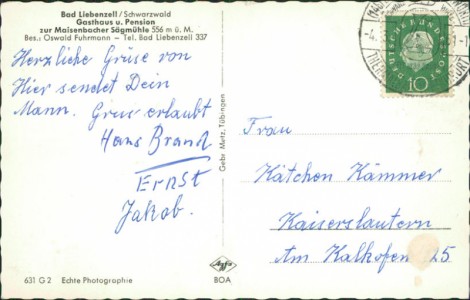 Bad Liebenzell / Schwarzwald
Gasthaus u. Pension
zur Maisenbacher Sägmühle 556 m ü. M.
Bes.: Oswald Fuhrmann – Tel. Bad Liebenzell 337
Herzliche Grüße von
Hier sendet Dein
Mann. Gruß erlaubt
Hans Brand
Ernst
Jakob.
631 G 2 Echte Photographie
Gebr. Metz, Tübingen
Agfa
BOA
DEUTSCHE BUNDESPOST
10
Frau
Kätchen Kämmer
Kaiserslautern
Am Kalkofen 25